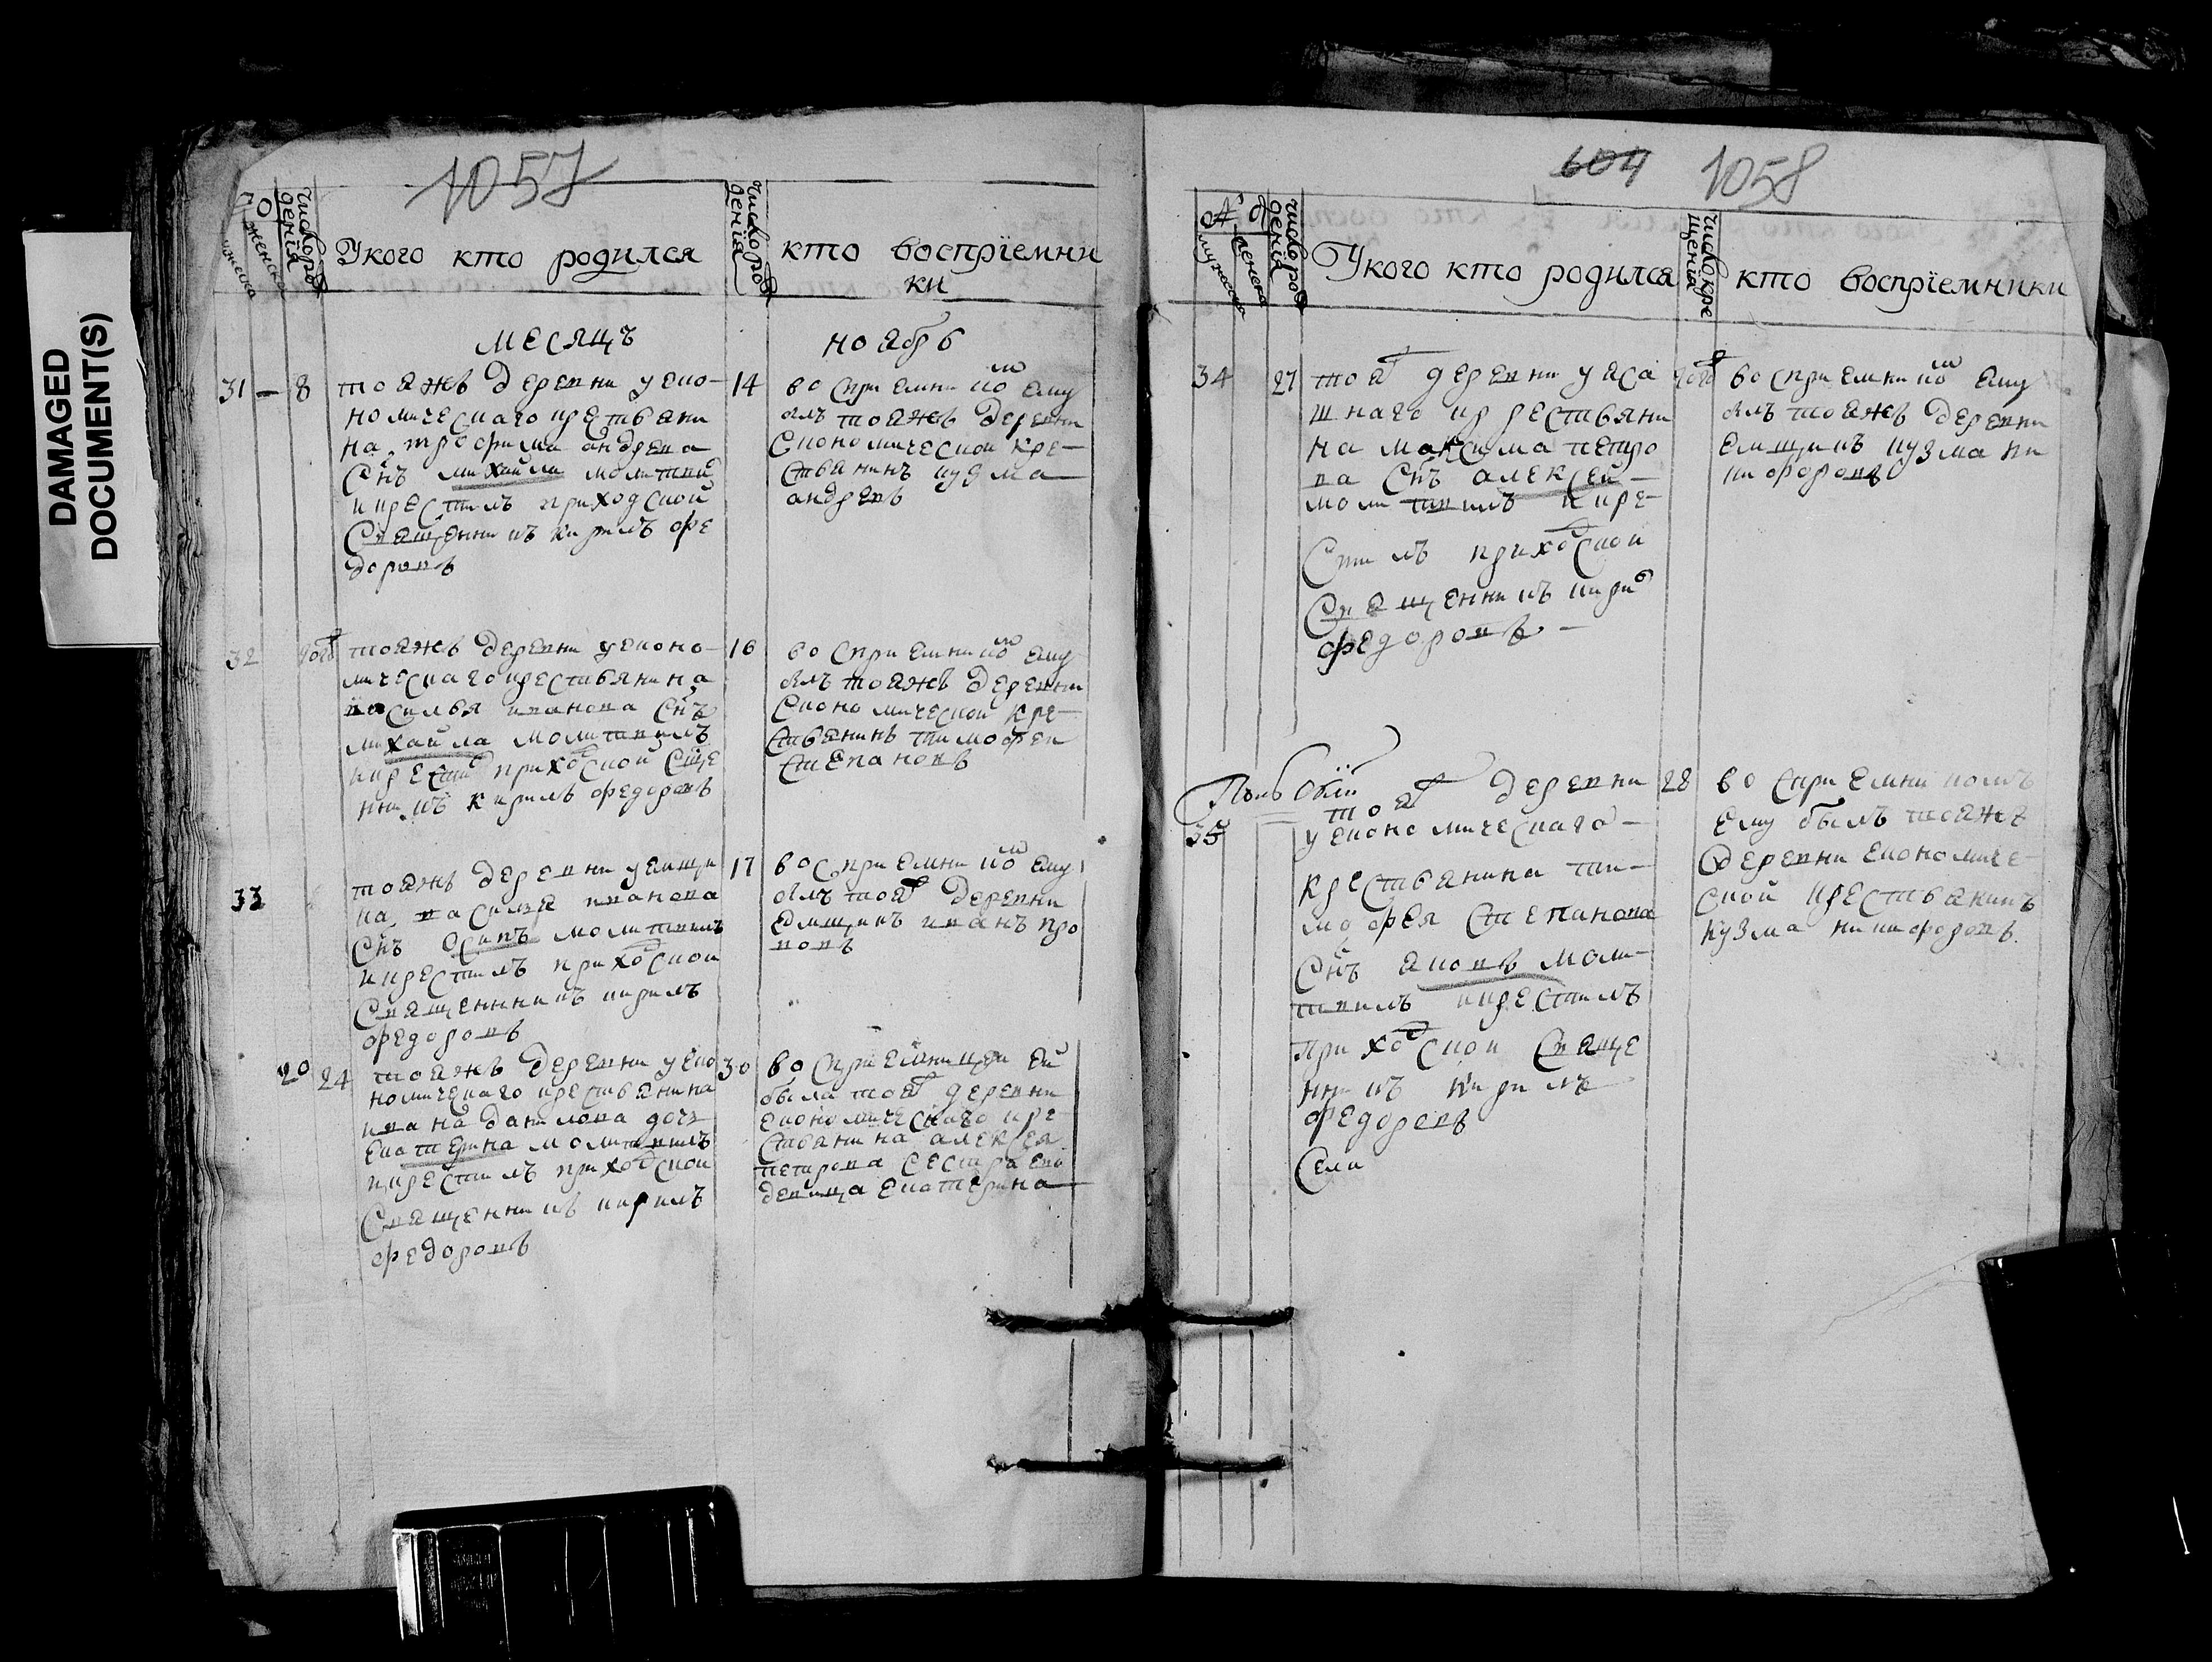 DAMAGED
DOCUMENT(S)
1057
го
мужеска
женска
число рож
дения
У кого кто родился
число рож
дения
кто восприемни
ки
месяцъ ноябрь
31 - 8
тояжъ деревни у еко-
номическаго крествяни
на трофима андреева
Снъ михайла молитвил
и крестилъ приходской
Священникъ кирилъ фе
доровъ
14
восприемником ему
былъ тояжъ деревни
Економической кре-
стьянинъ кузма
андреевъ
32
тогож
тояжъ деревни у економи-
ческаго крестьянина
василья иванова Снъ
михайла молитвилъ
и крестил приходской Свяще
нникъ кирилъ федоровъ
16
восприемником ему
былъ тояжъ деревни
Економической кре-
стьянинъ тимофеи
Степановъ
33
тояжъ деревни у ямщи
ка василья иванова
Снъ Осипъ молитвилъ
и крестилъ приходской
Священникъ кирилъ
федоровъ
17
восприемником ему
былъ тояж деревни
Ямщикъ иванъ про
вовъ
20 24
тояжъ деревни у еко
номическаго крестьянина
ивана данилова дочь
Екатерина молитвилъ
и крестилъ приходской
Священникъ кирилъ
федоровъ
30
восприемницеи ей
была тояж деревни
економическаго кре
стьянина алексея
петрова Сестра ево
девица екатерина
604 1058
мужеска
женска
число рож
дения
У кого кто родился
число кре
щения
кто восприемники
34 27
тояж деревни у яса
шнаго крестьяни
на максима петро
ва Снъ алексей
молитвилъ и кре-
стилъ приходской
Священникъ кирил
федоровъ
тогож
восприемником ему
былъ тояжъ деревни
Ямщикъ кузма ни
кифоровъ
35
тояж деревни
у економическаго
крестьянина ти-
мофея Степанова
Снъ яковъ моли-
твилъ и крестилъ
приходской Свяще
нникъ кирилъ
федоровъ
Села
28
восприемникомъ
ему былъ тояже
деревни економиче-
ской крестьянинъ
кузма никифоровъ